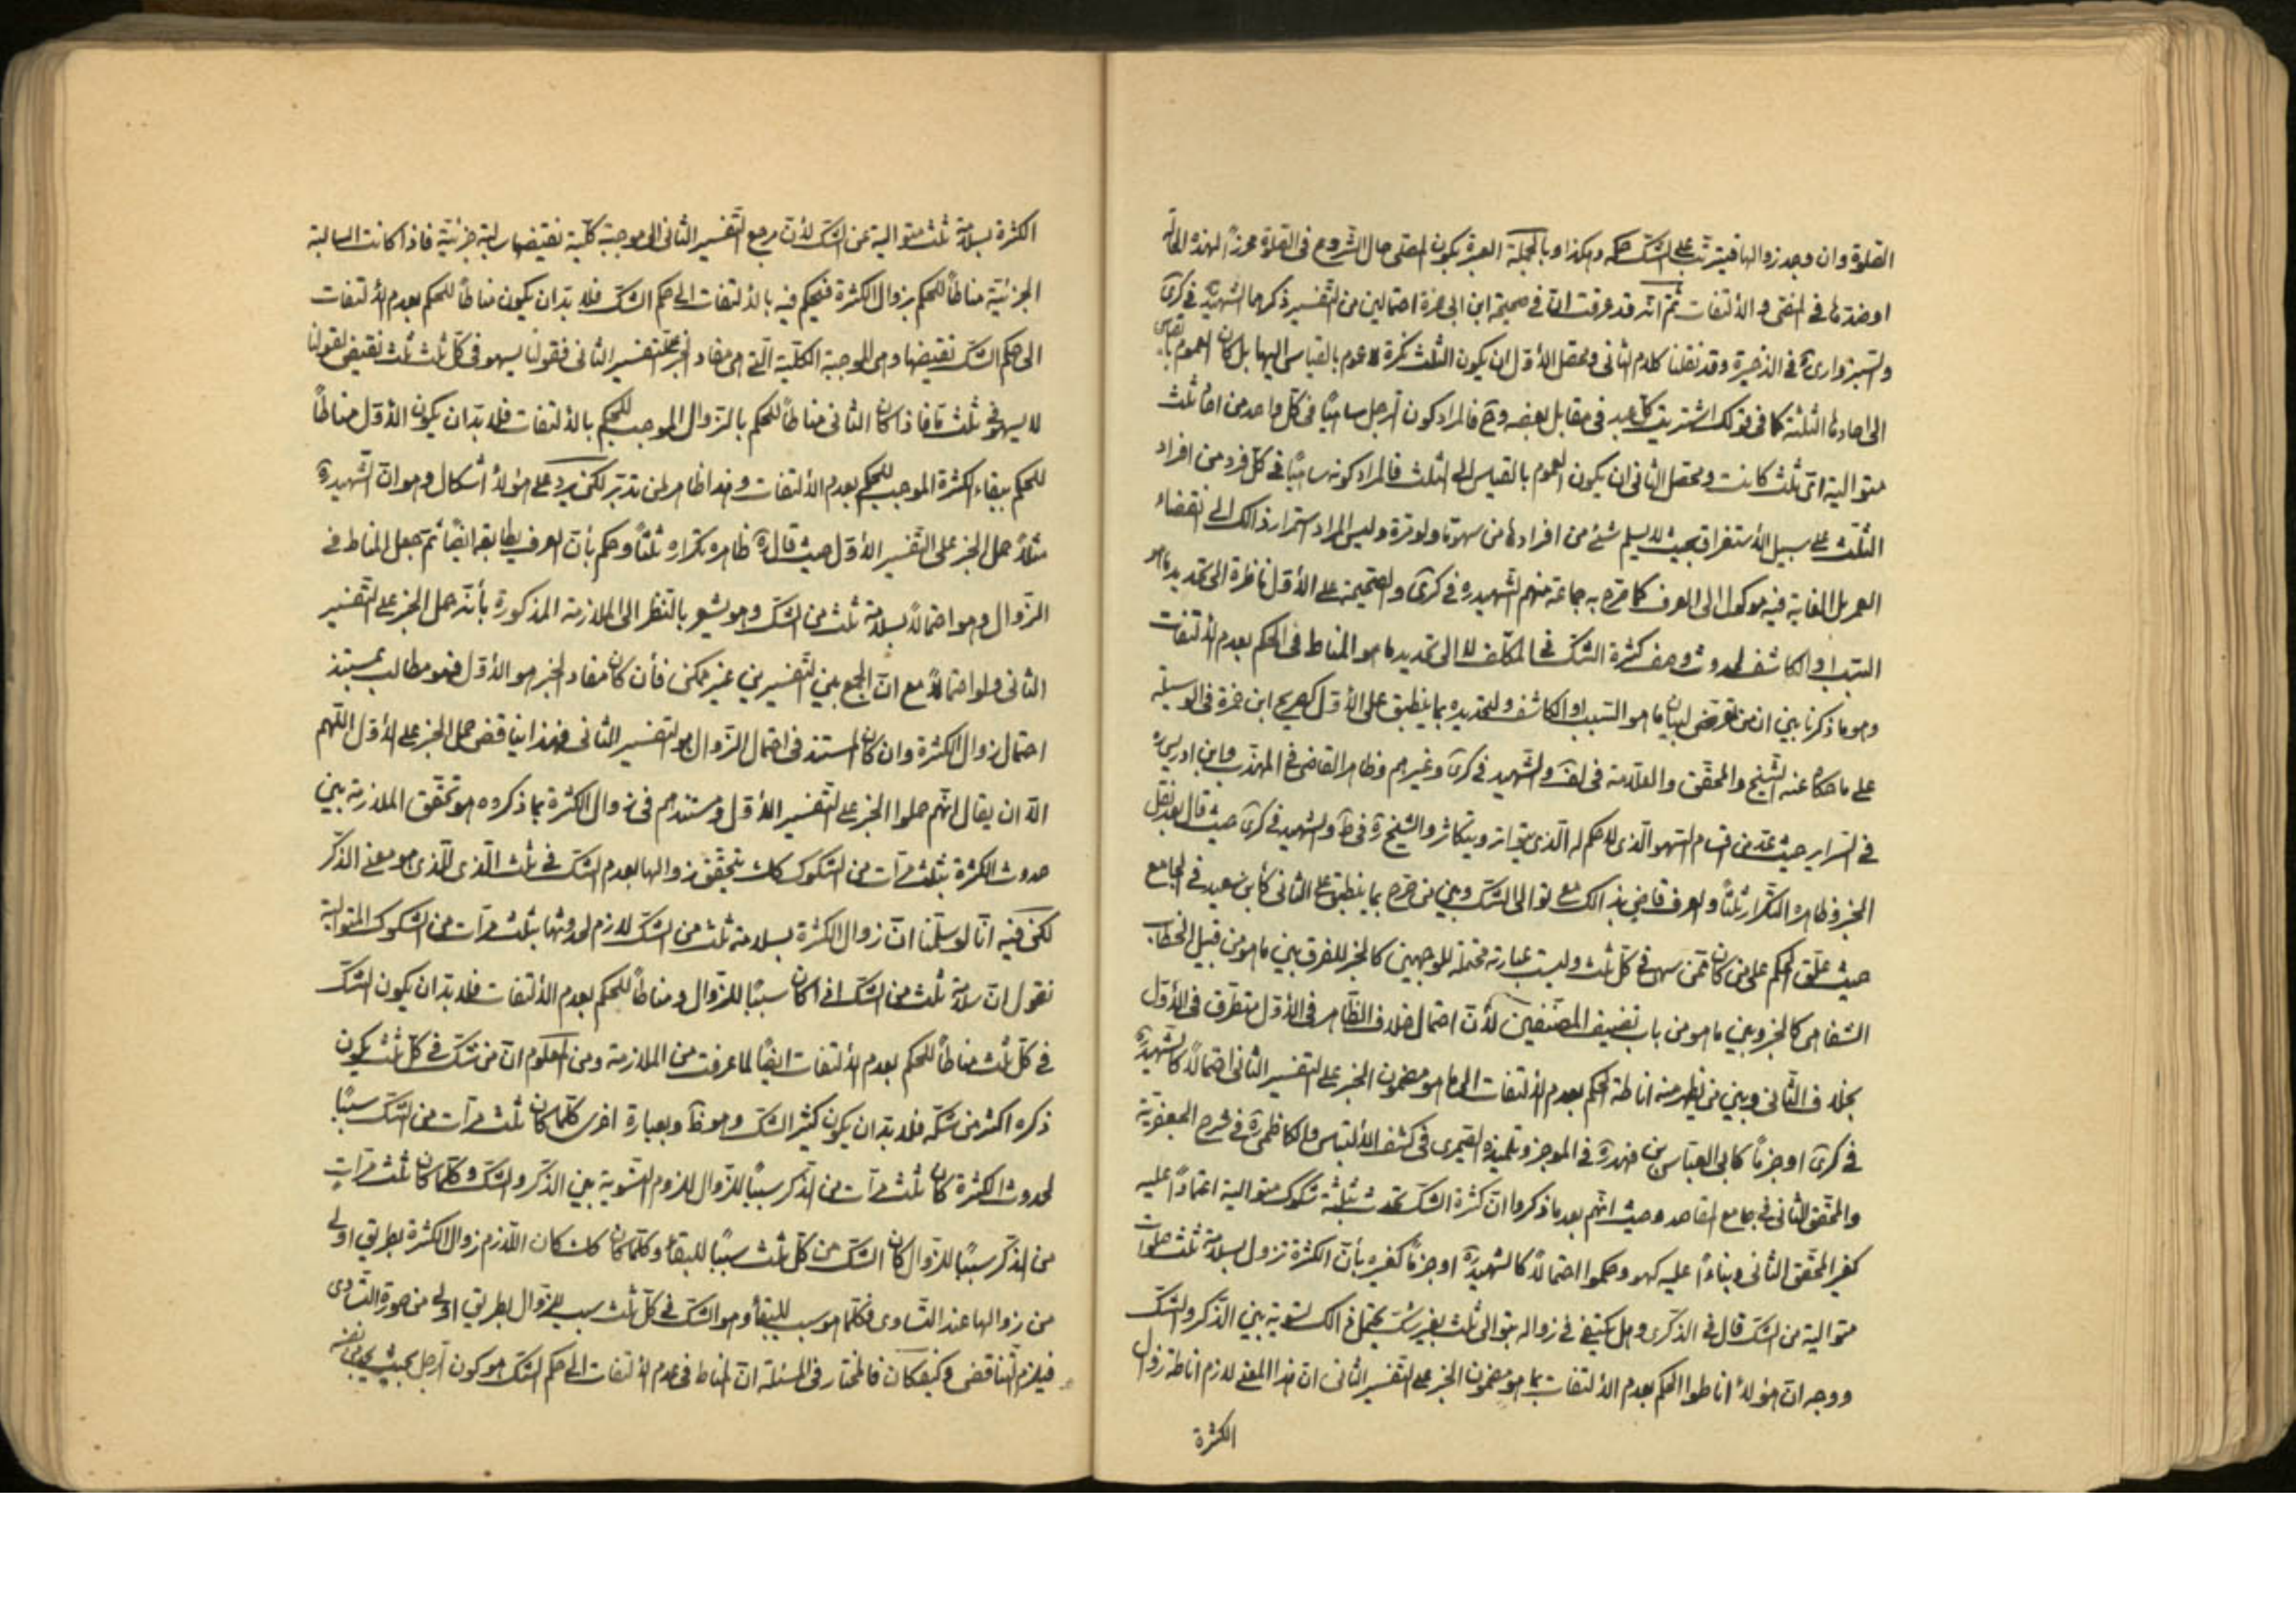 الصّلوة وان وجد زوالها فيترتّب على الشّكّ حكمه وهكذا وبالجملة العبرة بكون المصلّى حال الشّروع فى الصّلوة محرزاً لهذه الحالة
او ضدّها فى المضى والالتفات ثمّ انّه قد عرفت انّ فى صحيحة ابن ابى حمزة احتمالين من التّفسير ذكرهما الشّهيدّ فى كرى
والسّبزوارىّ فى الذخيرة وقد نقلنا كلام الثانى ومحصّل الاوّل ان يكون الثلث نكرة لا عموم بالقياس اليها بل كان العموم بالقياس
الى احادها الثلثة كما فى قولك اشتريت كلّ عبد فى مقابل بعضه وح فالمراد كون الرّجل ساهيًا فى كلّ واحد من احاد ثلث
متوالية اىّ ثلث كانت ومحصّل الثانى ان يكون العموم بالقياس الى الثلث فالمراد كونه ساهيًا فى كلّ فرد من افراد
الثّلث على سبيل الاستغراق بحيث لا يسلم شئ من افرادها من سهو ما ولو مرّة وليس المراد استمرار ذالك الى انقضاء
العمر بل الغاية فيه موكول الى العرف كما صرّح به جماعة منهم الشّهيدره فى كرى والصّحيحة على الاوّل ناظرة الى تحديد ما هو
السّبب او الكاشف لحدوث وصف كثرة الشّكّ فى المكلّف لا الى تحديد ما هو المناط فى الحكم بعدم الالتفات
وهو ما ذكرنا بين ان من تعرّض لبيان ما هو السّبب او الكاشف ولتحديده بما ينطبق على الاوّل كصريح ابن حمزة فى الوسيلة
على ما حكاه عنه الشّيخ والمحقّق والعلّامة فى لف والشّهيد فى كرى وغيرهم وظاهر القاضى فى المهذّب وابن ادريس ره
فى السّرائر حيث عدّ من اقسام السّهو الّذى لا حكم له الّذى يتواتر ويتكاثر والشّيخ ره فى ط والشّهيد فى كرى حيث قال بعد نقل
الخبر وظاهره التكرار ثلثًا والعرف قاض بذالك مع توالى الشّكّ وبين من صرّح بما ينطبق على الثّانى كابن سعيد فى الجامع
حيث علّق الحكم على من كان ممّن سهى فى كلّ ثلث وليست عبارته محتملة للوجهين كالخبر للفرق بين ما هو من قبيل الخطاب
الشّفاهى كالخبر وبين ما هو من باب تصنيف المصنّفين لأنّ احتمال خلاف الظّاهر فى الاوّل متطرّق فى الاوّل
بخلاف الثّانى وبين من يظهر منه اناطة الحكم بعدم الالتفات الى ما هو مضمون الخبر على التّفسير الثّانى احتمالاً كالشّهيدره
فى كرى او جزمًا كابى العبّاس بن فهد ره فى الموجز وتلميذه الصّيمرى فى كشف الالتباس والكاظمى ره فى شرح الجعفريّة
والمحقّق الثّانى فى جامع المقاصد وحيث انّهم بعد ما ذكروا انّ كثرة الشّكّ تحدث بثلثة شكوك متوالية اعتمادًا عليه
كغير المحقّق الثّانى وبناءً عليه كهو وحكموا احتمالاً كالشّهيدره او جزمًا كغيره بأنّ الكثرة تزول بسلامة ثلث صلوات
متوالية من الشّكّ قال فى الذكرى وهل يكتفى فى زواله بتوالى ثلث بغير شكّ يحتمل ذالك لتسوية بين الذّكر والشّكّ
ووجه انّ هؤلاء اناطوا الحكم بعدم الالتفات بما هو مضمون الخبر على التّفسير الثّانى انّ هذا المعنى لازم اناطة زوال
الكثرة
الكثرة بسلامة ثلث متوالية عن الشّكّ لأنّ مرجع التّفسير الثّانى الى موجبة كلّية نقيضها سالبة جزئيّة فاذا كانت السالبة
الجزئيّة مناطاً للحكم بزوال الكثرة فيحكم فيه بالالتفات الى حكم الشّكّ فلا بدّ ان يكون مناطاً للحكم بعدم الالتفات
الى حكم الشّكّ نقيضها وهى الموجبة الكلّية الّتى هى مفاد الخبر بالتّفسير الثانى فقولنا يسهو فى كلّ ثلث ثلث نقيض لقولنا
لا يسهو فى ثلث ما فاذا كان الثّانى مناطاً للحكم بالزّوال الموجب للحكم بالالتفات فلا بدّ ان يكون الاوّل مناطاً
للحكم ببقاء الكثرة الموجب للحكم بعدم الالتفات وهذا ظاهر لمن تدبّر لكن يرد على هؤلاء اشكال وهو انّ الشّهيدره
مثلاً حمل الخبر على التّفسير الاوّل حيث قال ره ظاهره تكراره ثلثًا وحكم بأنّ العرف يطابقه ايضًا ثمّ جعل المناط فى
الزّوال وهو احتمالاً بسلامة ثلث من الشّكّ وهو يشعر بالنّظر الى الملازمة المذكورة بأنّه حمل الخبر على التّفسير
الثانى ولو احتمالاً مع انّ الجمع بين التّفسيرين غير ممكن فأن كان مفاد الخبر هو الاوّل فهو مطالب بمستند
احتمال زوال الكثرة وان كان المستند فى احتمال الزّوال هو التّفسير الثّانى فهذا يناقض حمل الخبر على الاوّل اللّهم
الّا ان يقال انّهم حملوا الخبر على التّفسير الاوّل ومستندهم فى زوال الكثرة بما ذكروه هو تحقّق الملازمة بين
حدوث الكثرة بثلث مرّات من الشكوك كك يتحقّق زوالها بعدم الشّكّ فى ثلث الّذى الّذى هو معنى الذكر
لكن فيه انّا لو سلّمنا انّ زوال الكثرة بسلامة ثلث من الشّكّ لازم لحدوثها بثلث مرّات من الشكوك المتوالية
نقول انّ سلامة ثلث من الشّكّ اذا كان سببًا للزّوال ومناطاً للحكم بعدم الالتفات فلا بدّ ان يكون الشّكّ
فى كلّ ثلث مناطاً للحكم بعدم الالتفات ايضًا لما عرفت من الملازمة ومن المعلوم انّ من شكّ فى كلّ ثلث يكون
ذكره اكثر من شكّه فلا بدّ ان يكون كثير الشّكّ وهو خلاف وبعبارة اخرى كلّما كان ثلث مرّات من الشّكّ سببًا
لحدوث الكثرة كان ثلث مرّات من الذّكر سببًا للزّوال للزوم التّسوية بين الذّكر والشّكّ وكلّما كان ثلث مرّات
من الذّكر سببًا للزّوال كان الشّكّ من كلّ ثلث سببًا للبقاء وكلّما كان كك كان اللّازم زوال الكثرة بطريق اولى
من زوالها عند التّساوى فكلّما هو سبب للبقاء وهو الشّكّ فى كلّ ثلث سبب للزّوال بطريق اولى من صورة التّساوى
فيلزم التّناقض وكيفكان فالمختار فى المسئلة انّ المناط فى عدم الالتفات الى حكم الشّكّ هو كون الرّجل بحيث يجد من نفسه